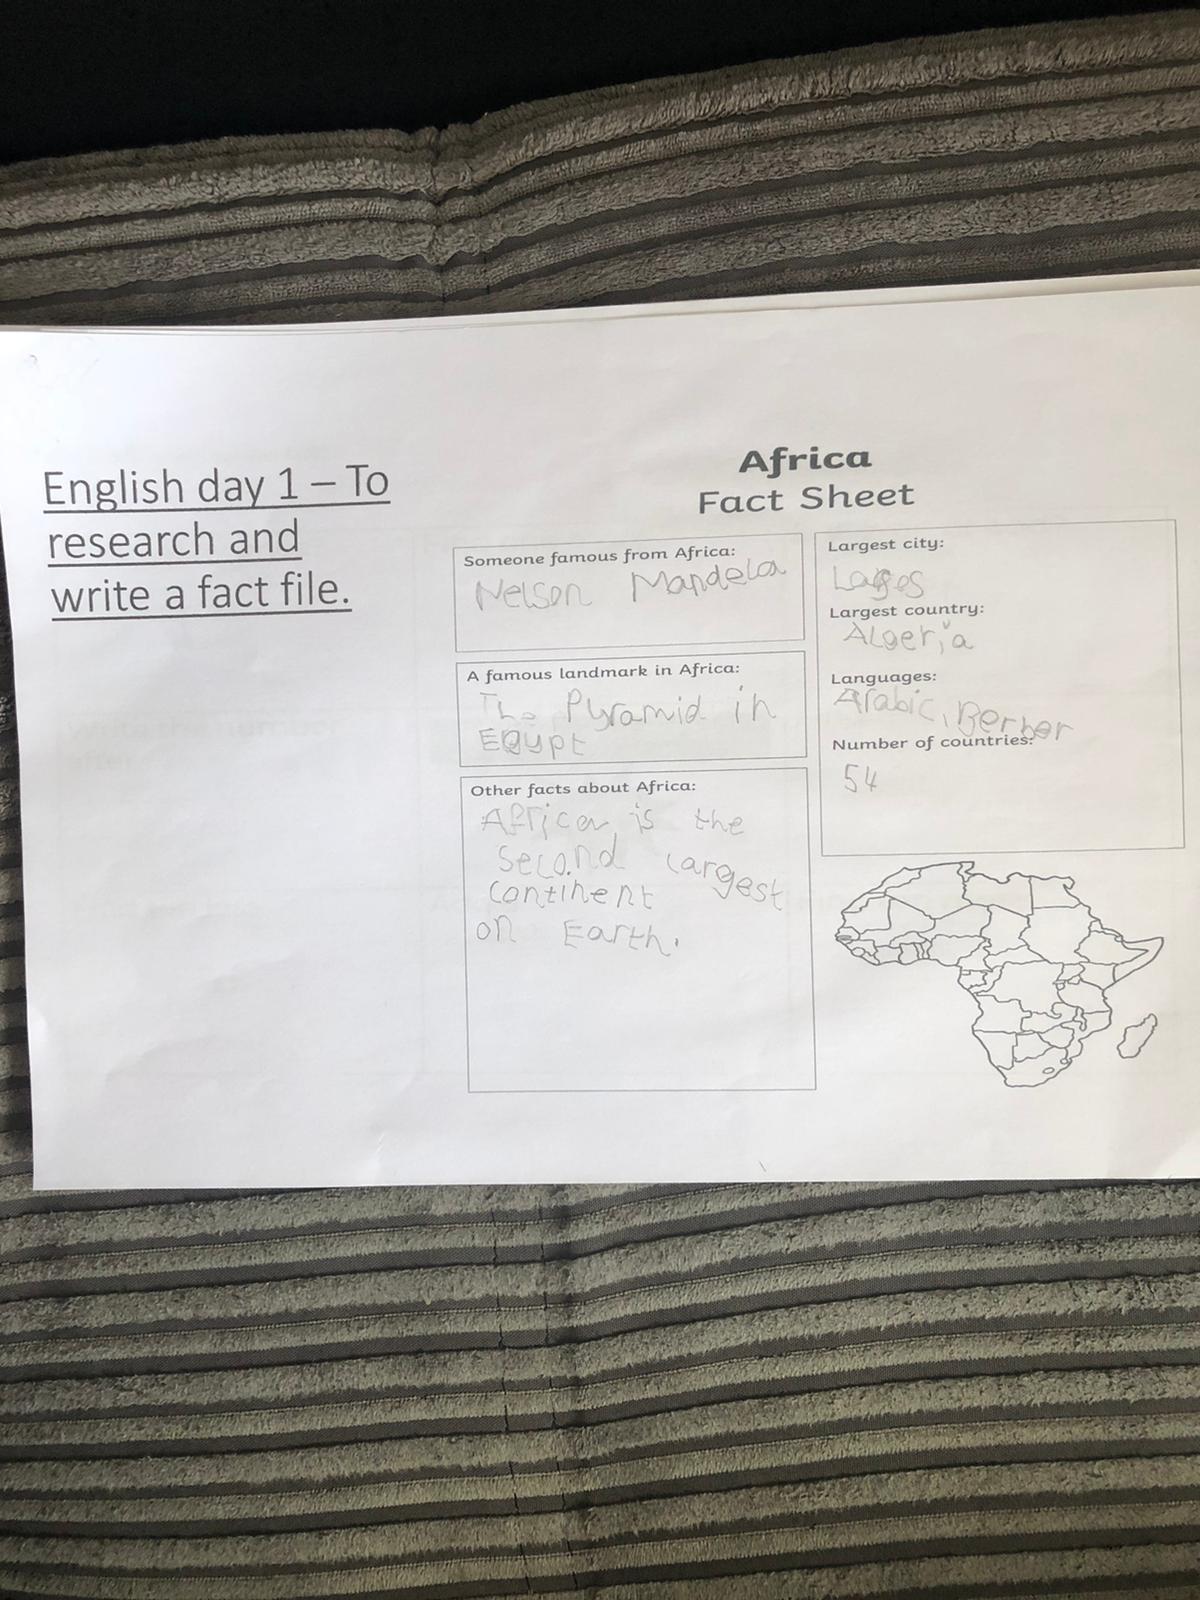 English day 1 – To
research and
write a fact file.
Africa
Fact Sheet
Someone famous from Africa:
Nelson Mandela
A famous landmark in Africa:
The Pyramid in
Egypt
Other facts about Africa:
Africa is the
second largest
continent
on Earth.
Largest city:
Lagos
Largest country:
Algeria
Languages:
Arabic, Berber
Number of countries:
54